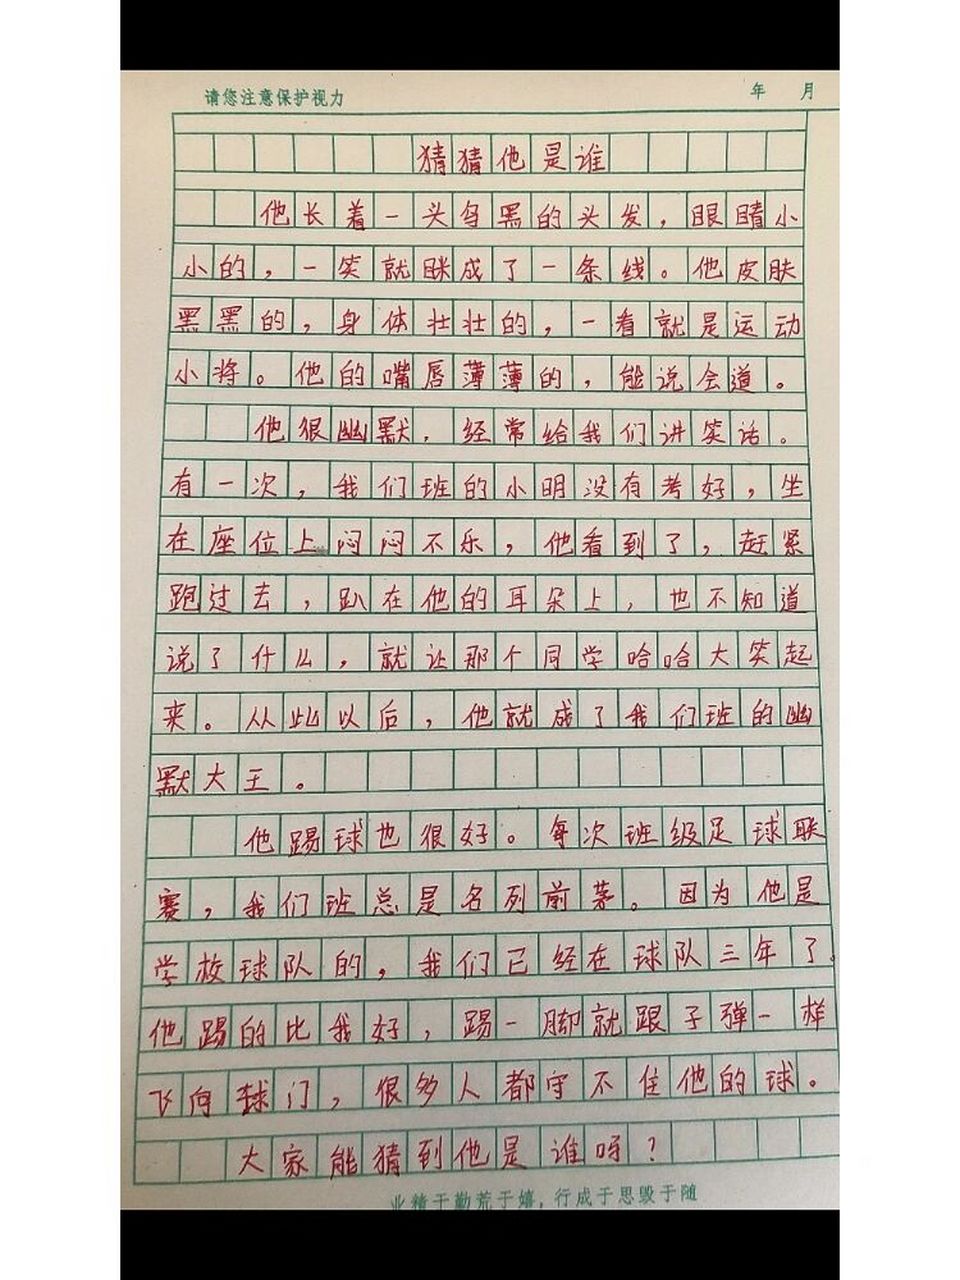 请您注意保护视力 年 月
猜猜他是谁
他长着一头乌黑的头发，眼睛小
小的，一笑就眯成了一条线。他皮肤
黑黑的，身体壮壮的，一看就是运动
小将。他的嘴唇薄薄的，能说会道。
他很幽默，经常给我们讲笑话。
有一次，我们班的小明没有考好，坐
在座位上闷闷不乐，他看到了，赶紧
跑过去，趴在他的耳朵上，也不知道
说了什么，就让那个同学哈哈大笑起
来。从此以后，他就成了我们班的幽
默大王。
他踢球也很好。每次班级足球联
赛，我们班总是名列前茅。因为他是
学校球队的，我们已经在球队三年了。
他踢的比我好，踢一脚就跟子弹一样
飞向球门，很多人都守不住他的球。
大家能猜到他是谁吗？
业精于勤荒于嬉，行成于思毁于随